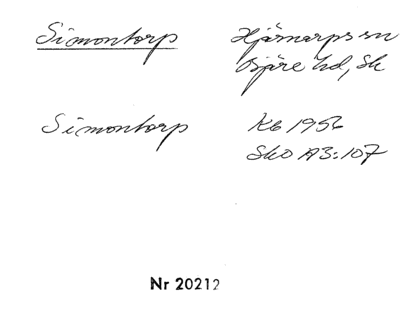 Simontorp Hjärnarps sn
Bjäre hd, Sk
Simontorp Kb 1956
SkO A3:107
Nr 20212